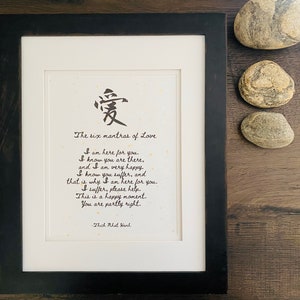 愛
The six mantras of Love
I am here for you.
I know you are there,
and I am very happy.
I know you suffer, and
that is why I am here for you.
I suffer, please help.
This is a happy moment.
You are partly right.
-Thich Nhat Hanh